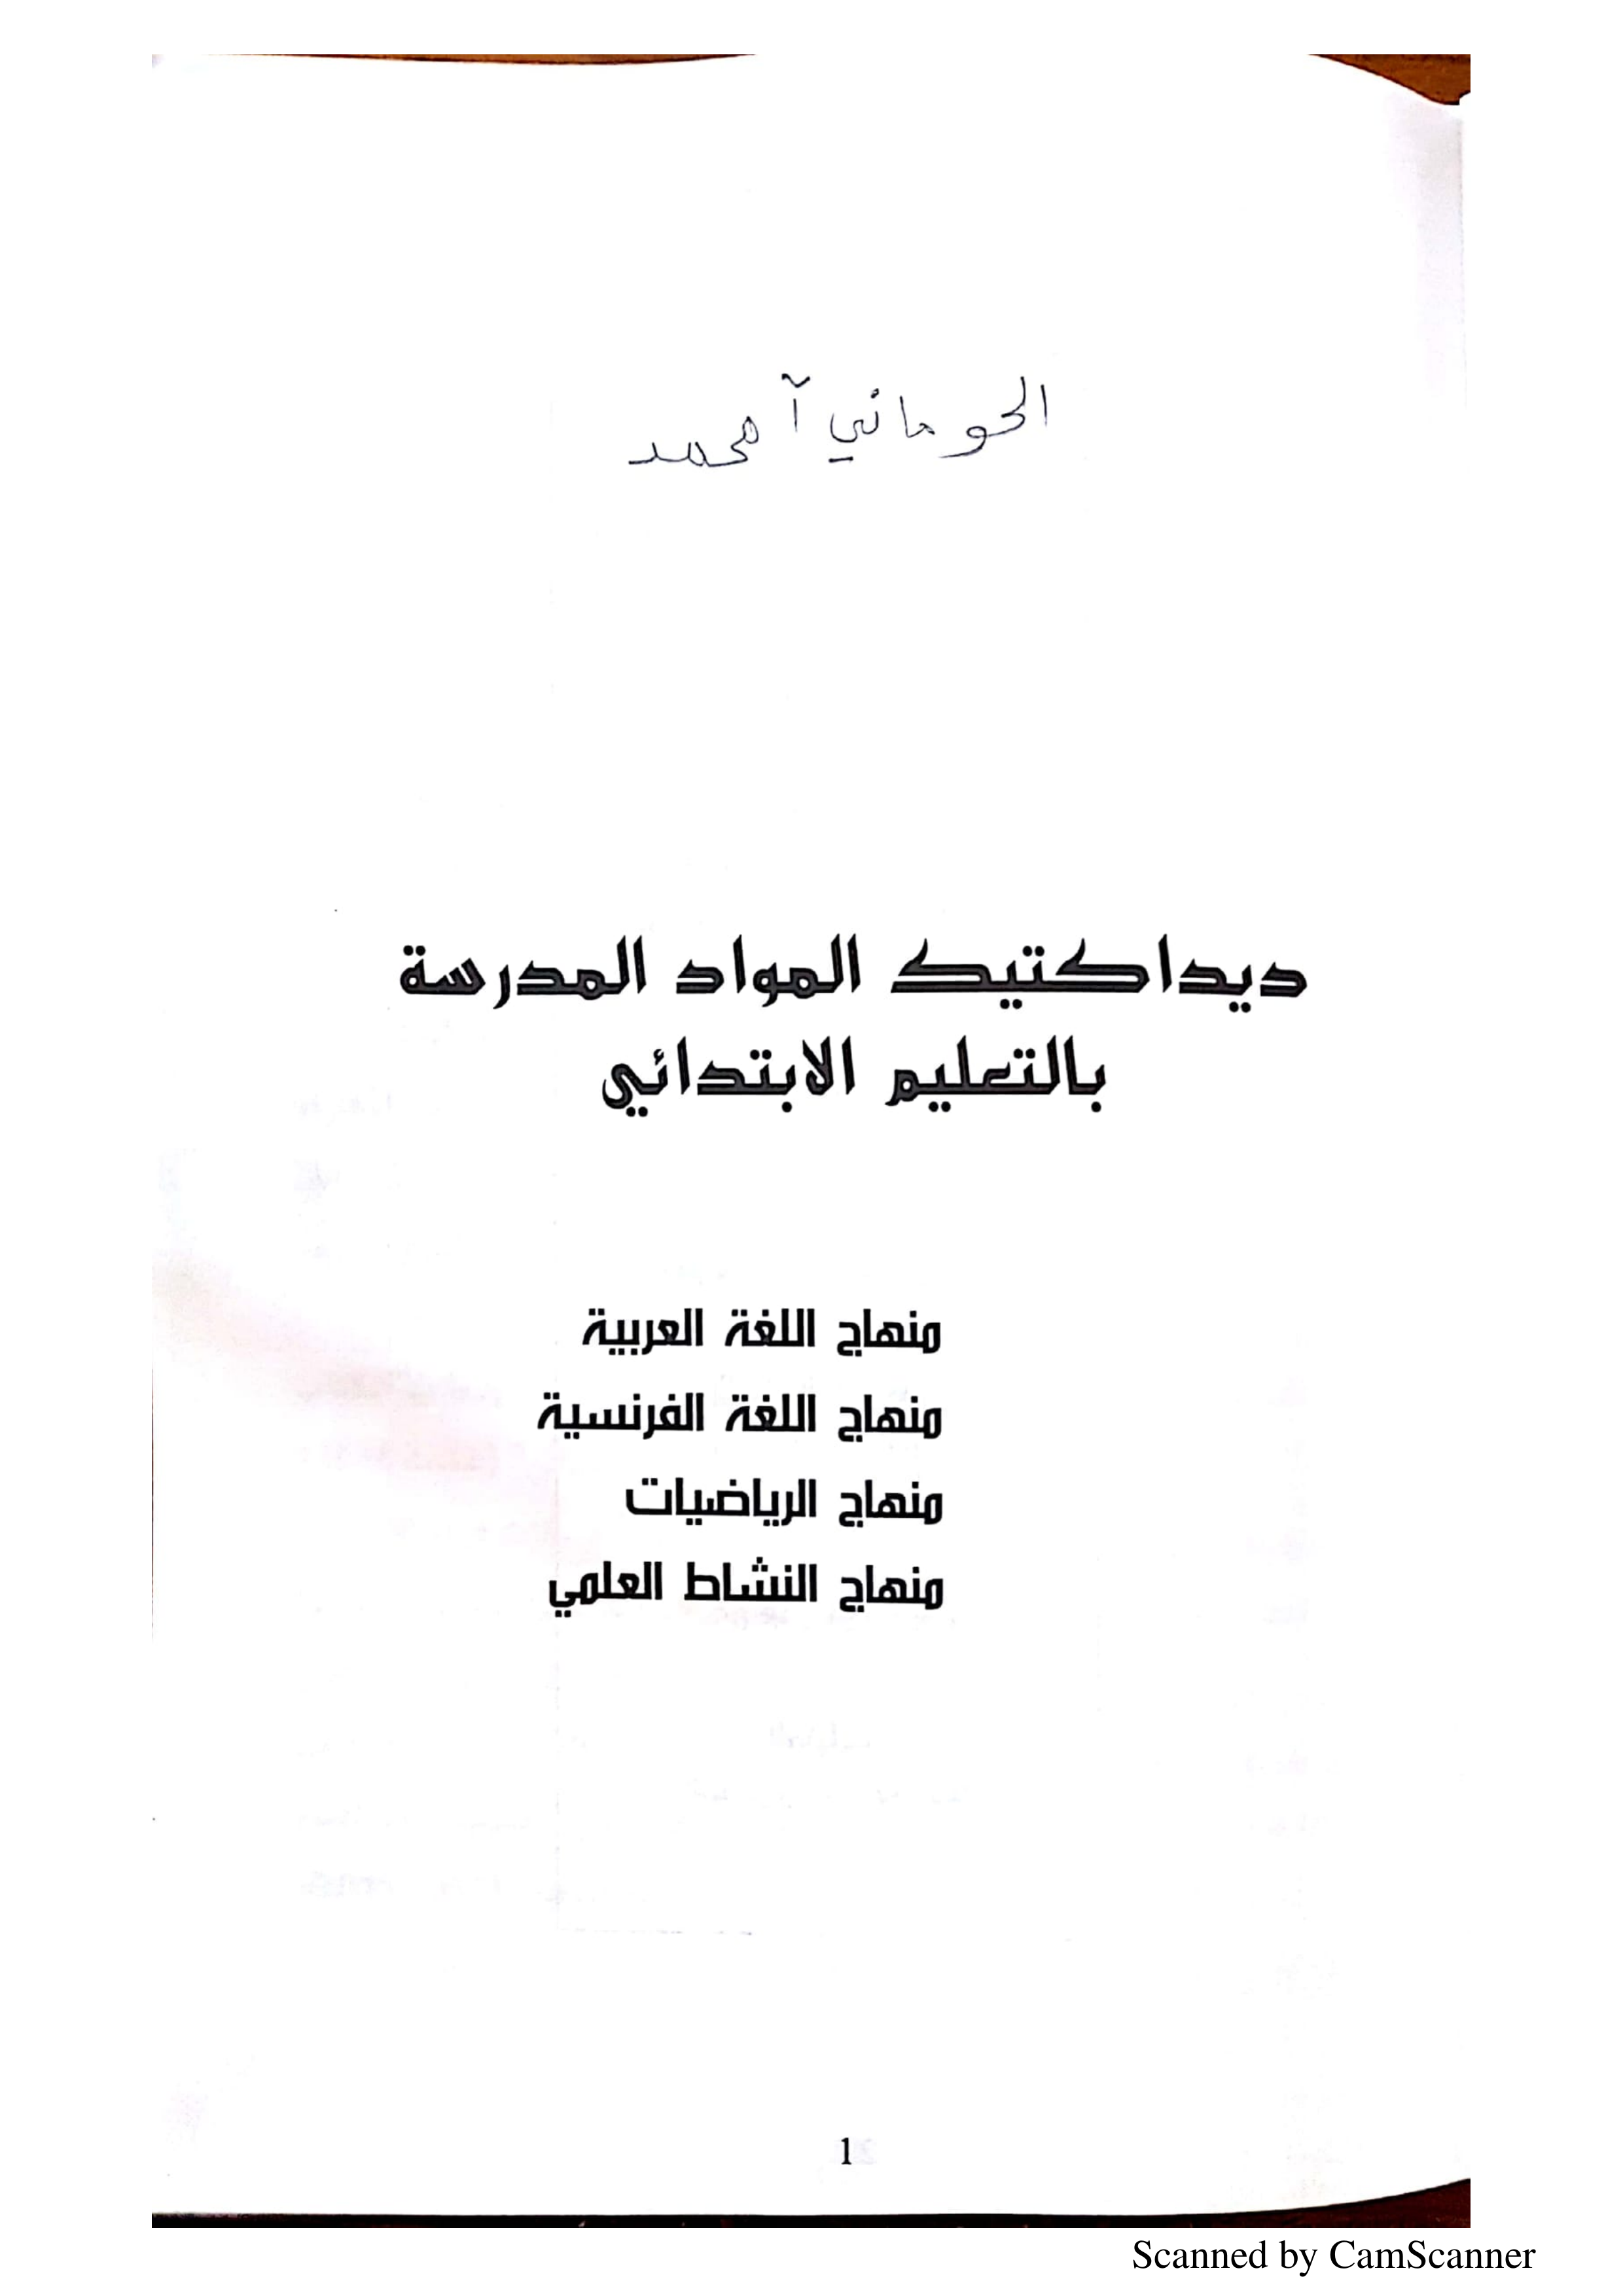 الحوماني آمحمد
ديداكتيك المواد المدرسة
بالتعليم الابتدائي
منهاج اللغة العربية
منهاج اللغة الفرنسية
منهاج الرياضيات
منهاج النشاط العلمي
1
Scanned by CamScanner